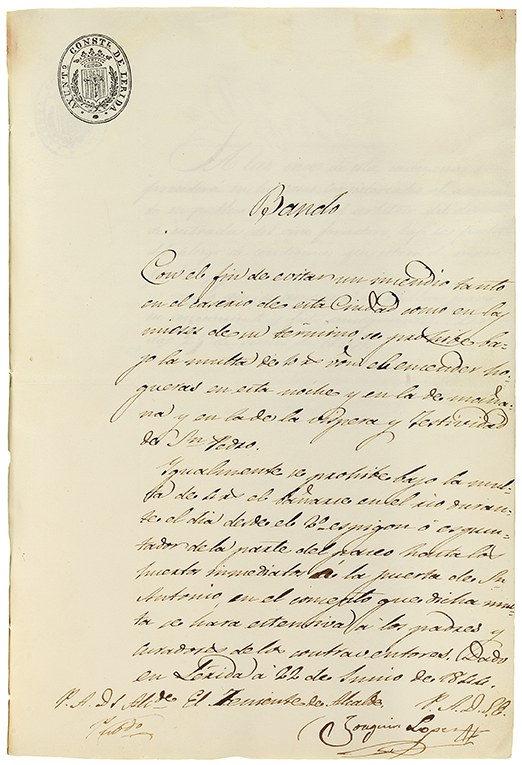 AYUNTº CONSTL DE LERIDA.
Bando
Con el fin de evitar un incendio tanto
en el caserio de esta Ciudad como en las
mieses de su término, se prohibe ba-
jo la multa de rs vn. el encender ho-
gueras en esta noche y en la de maña-
na y en la de la vispera y festividad
de Sn. Pedro.
Igualmente se prohibe bajo la mul-
ta de el bañarse en el rio duran-
te el dia desde el 2º espigon ó
de la parte del paseo hasta los
huertos inmediatos á la puerta de Sn.
Antonio en el concepto que dicha mul-
ta se hará extensiva á los padres y
curadores de los contraventores. Dado
en Lérida á 22 de Junio de 1844.
P. A. D. El Teniente de Alcalde P. A. D. S. E.
Joaquin Lopez